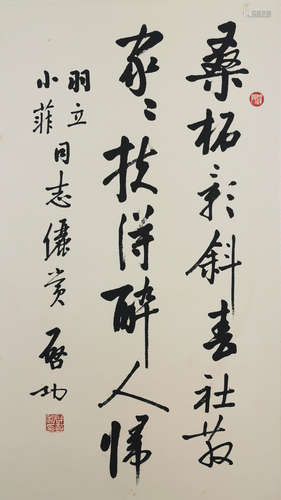 桑柘影斜春社散
家〻扶得醉人归
羽立
小菲同志俪赏
启功